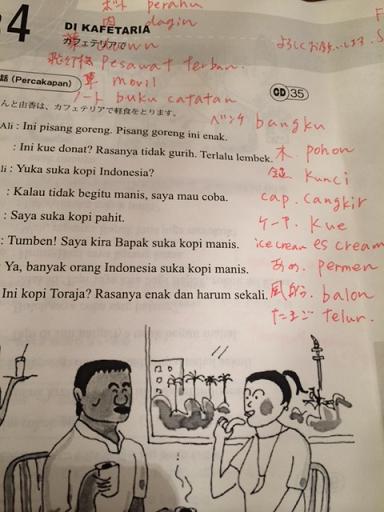 ボート perahu
肉 dagin
4 DI KAFETARIA
カフェテリアで
よろしくお願いします.
飛行機 pesawat terban.
話 (Percakapan)
車 movil
ノート buku catatan
CD 35
んと由香は、カフェテリアで軽食をとります。
ベンチ bangku
Ali : Ini pisang goreng. Pisang goreng ini enak.
: Ini kue donat? Rasanya tidak gurih. Terlalu lembek.
木 pohon
li : Yuka suka kopi Indonesia?
鍵 kunci
: Kalau tidak begitu manis, saya mau coba.
cap. cangkir
: Saya suka kopi pahit.
ケーキ. kue
: Tumben! Saya kira Bapak suka kopi manis.
ice cream es cream
Ya, banyak orang Indonesia suka kopi manis.
あめ. permen
Ini kopi Toraja? Rasanya enak dan harum sekali.
風船. balon
たまご telur.